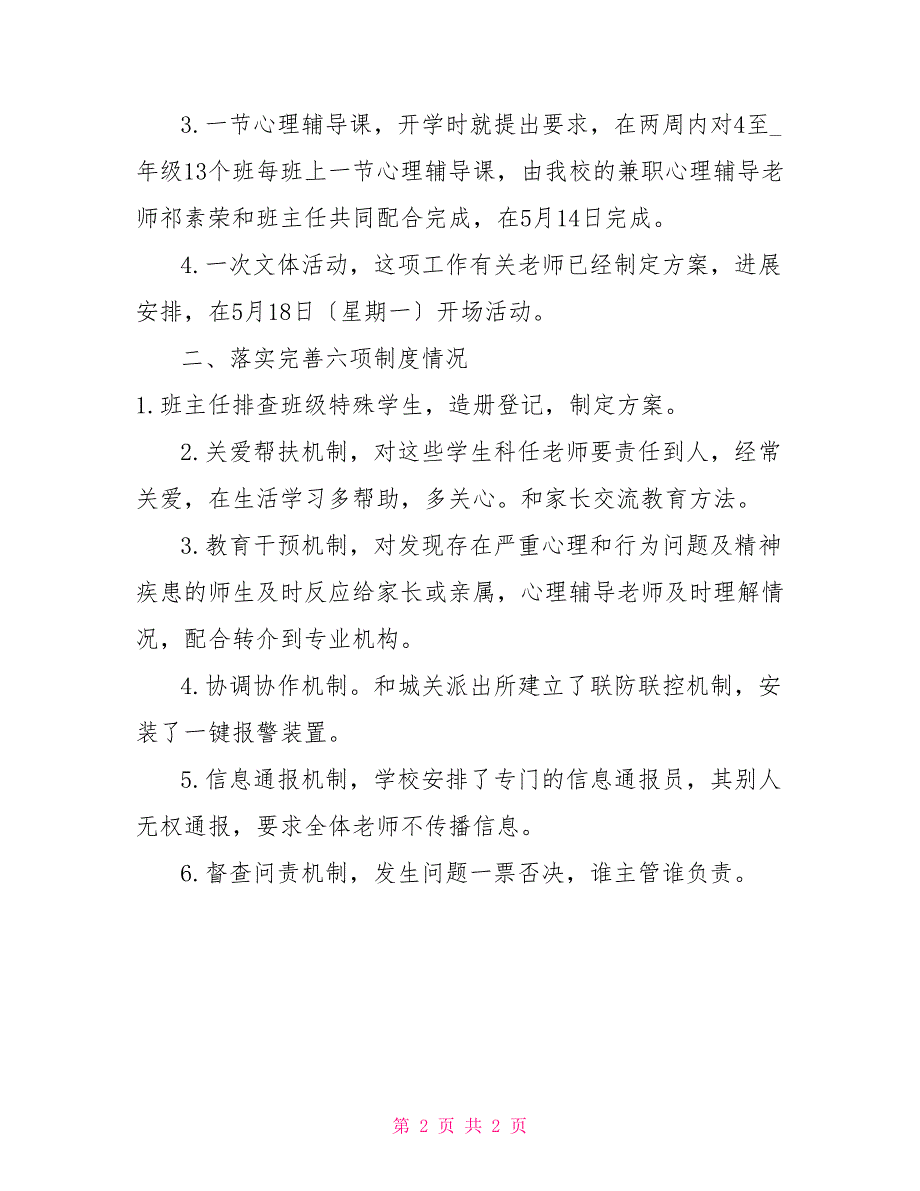 3.一节心理辅导课，开学时就提出要求，在两周内对4至_
年级13个班每班上一节心理辅导课，由我校的兼职心理辅导老
师祁素荣和班主任共同配合完成，在5月14日完成。
4.一次文体活动，这项工作有关老师已经制定方案，进展
安排，在5月18日〔星期一〕开场活动。
二、落实完善六项制度情况
1.班主任排查班级特殊学生，造册登记，制定方案。
2.关爱帮扶机制，对这些学生科任老师要责任到人，经常
关爱，在生活学习多帮助，多关心。和家长交流教育方法。
3.教育干预机制，对发现存在严重心理和行为问题及精神
疾患的师生及时反应给家长或亲属，心理辅导老师及时理解情
况，配合转介到专业机构。
4.协调协作机制。和城关派出所建立了联防联控机制，安
装了一键报警装置。
5.信息通报机制，学校安排了专门的信息通报员，其别人
无权通报，要求全体老师不传播信息。
6.督查问责机制，发生问题一票否决，谁主管谁负责。
第 2 页 共 2 页